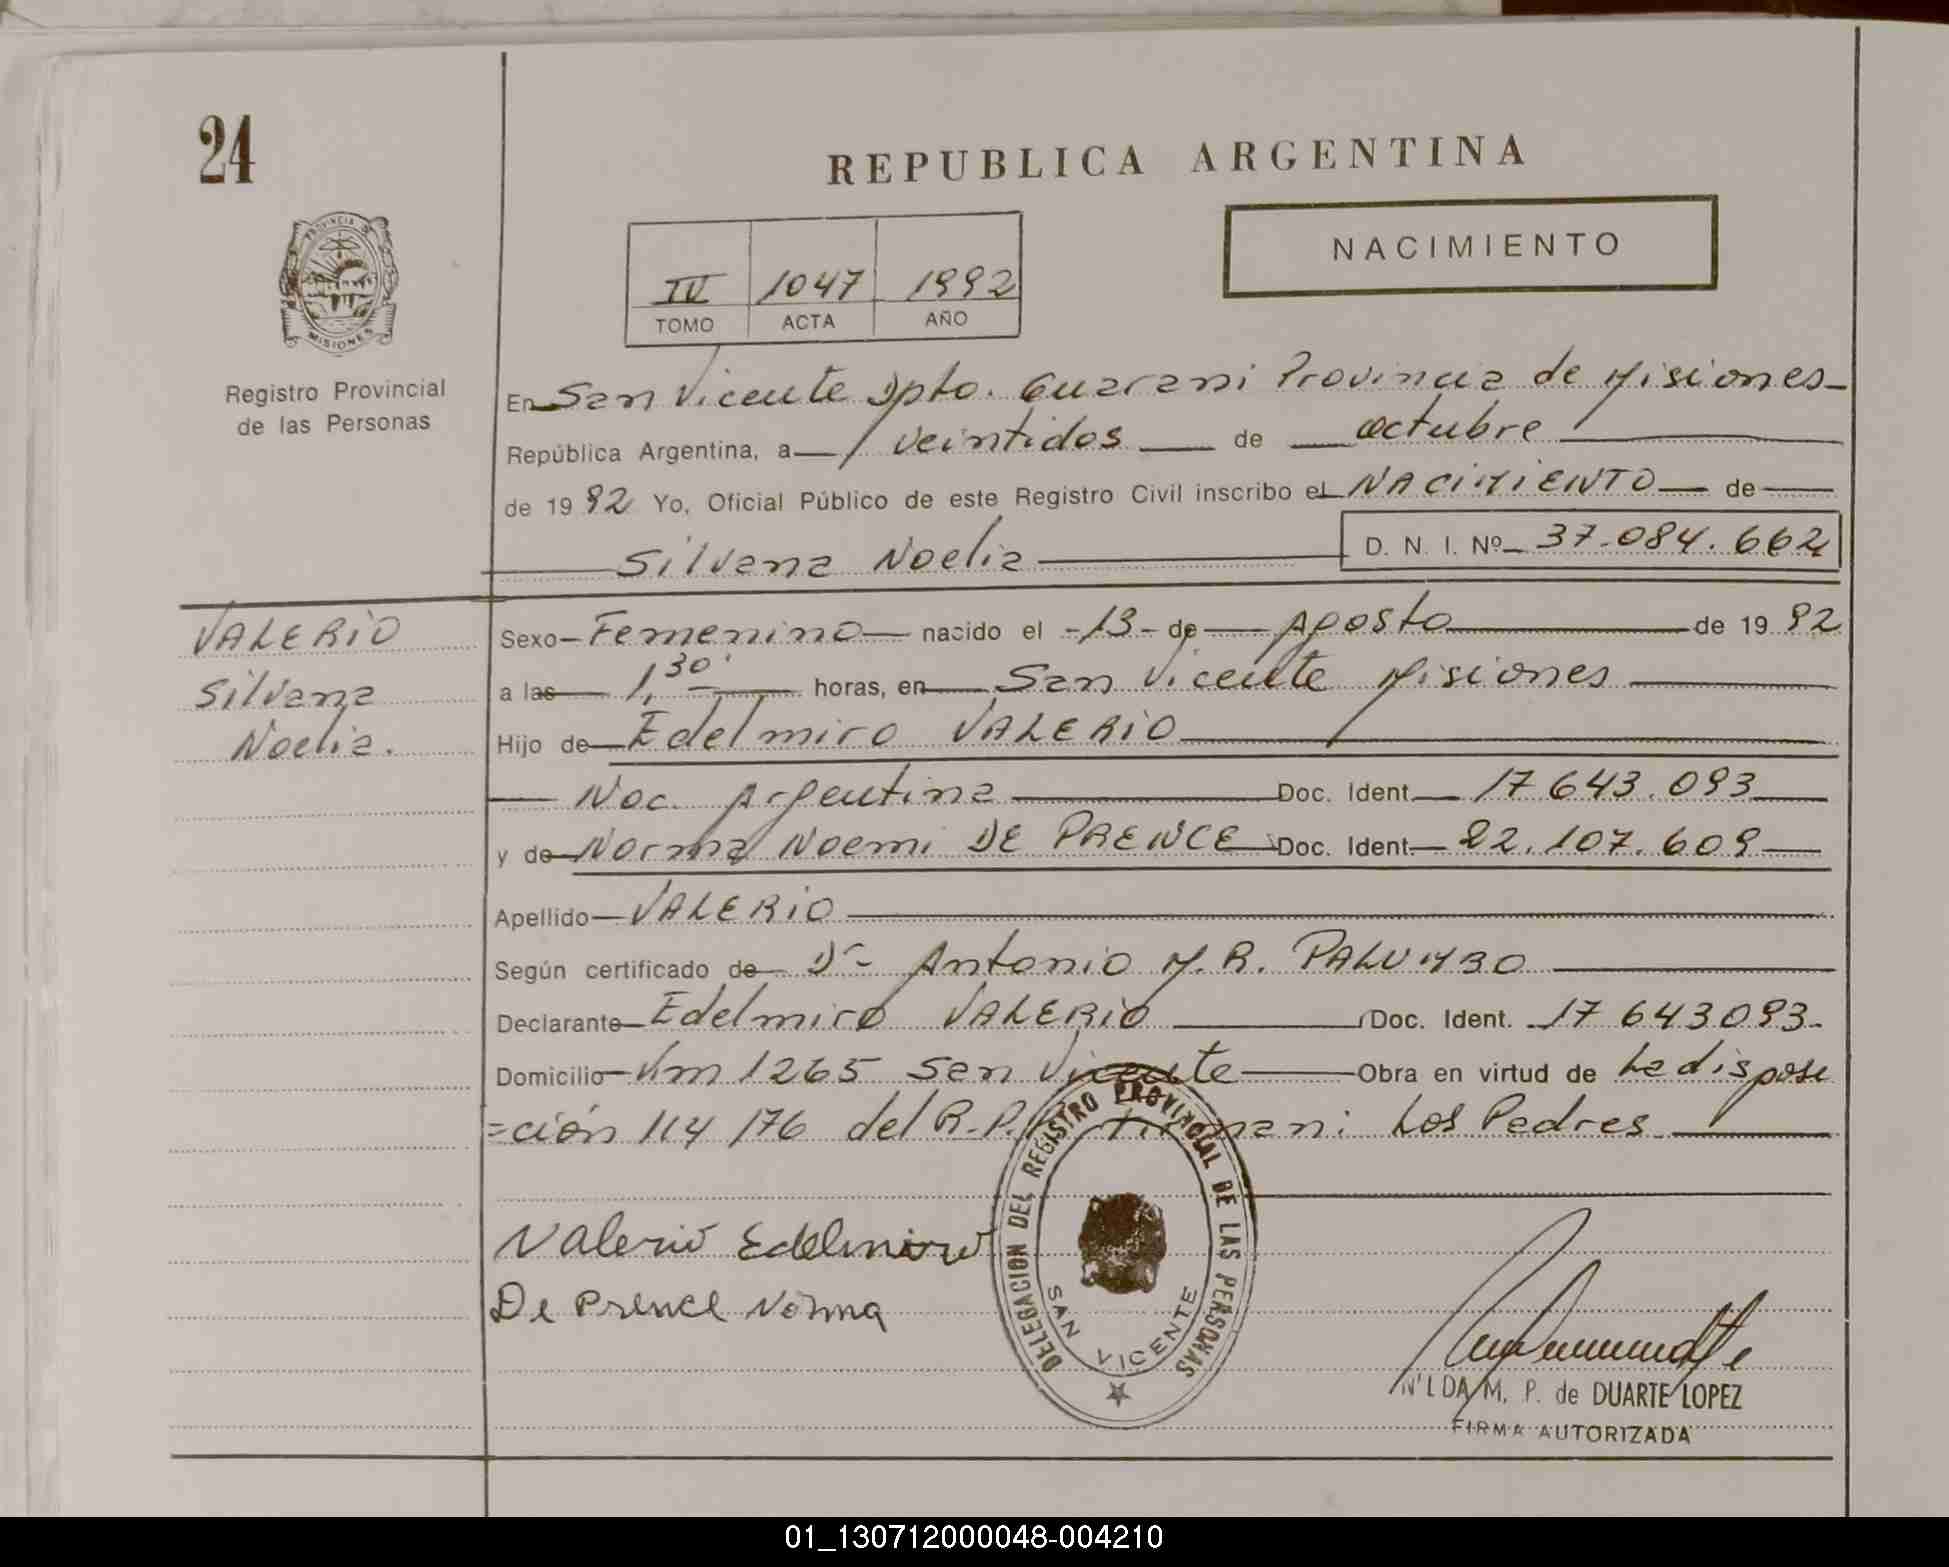 24
REPUBLICA ARGENTINA
NACIMIENTO
IV 1047 1992
TOMO ACTA AÑO
PROVINCIA DE
MISIONES
Registro Provincial
de las Personas
En San Vicente Dpto. Guarani Provincia de Misiones
República Argentina, a veintidos de octubre
de 1992 Yo, Oficial Público de este Registro Civil inscribo el NACIMIENTO de
Silvana Noelia D. N. I. Nº 37.084.662
VALERIO
Silvana
Noelia.
Sexo Femenino nacido el -13- de Agosto de 1992
a las 1,30 horas, en San Vicente Misiones
Hijo de Edelmiro VALERIO
Nac. Argentina Doc. Ident. 17 643.093
y de Norma Noemi DE PRENCE Doc. Ident. 22.107.609
Apellido VALERIO
Según certificado de Dr Antonio M. R. PALUMBO
Declarante Edelmiro VALERIO Doc. Ident. 17 643093.
Domicilio Km 1265 San Vicente Obra en virtud de La disposi
=ción 114/76 del R.P. Firman: Los Padres
Valerio Edelmiro
De Prence Norma
DELEGACION DEL REGISTRO PROVINCIAL DE LAS PERSONAS
SAN VICENTE
NILDA M. P. de DUARTE LOPEZ
FIRMA AUTORIZADA
01_130712000048-004210